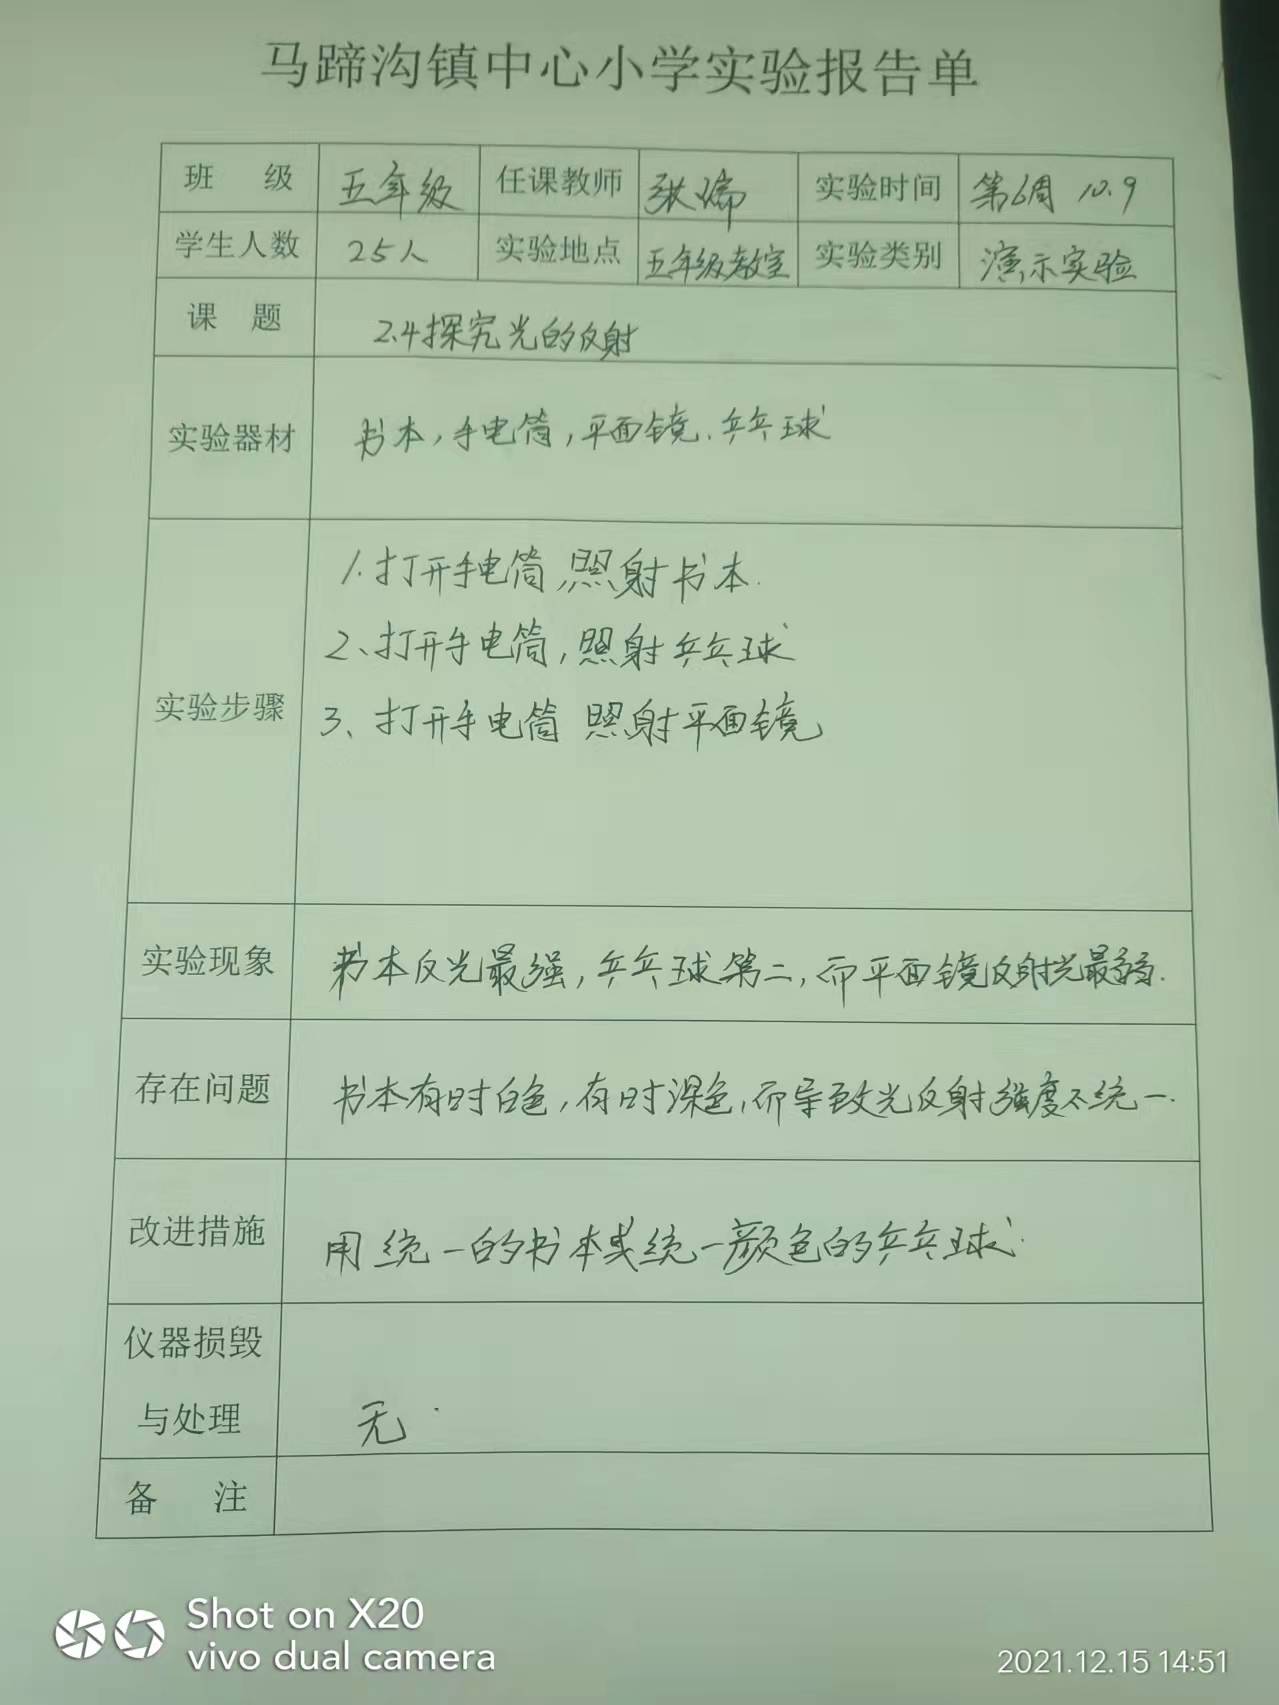 马蹄沟镇中心小学实验报告单
班 级 五年级 任课教师 张瑞 实验时间 第6周 10.9
学生人数 25人 实验地点 五年级教室 实验类别 演示实验
课 题 2.4探究光的反射
实验器材 书本,手电筒,平面镜、乒乓球
实验步骤
1.打开手电筒,照射书本.
2、打开手电筒,照射乒乓球
3、打开手电筒 照射平面镜
实验现象 书本反光最强,乒乓球第二,而平面镜反射光最弱.
存在问题 书本有时白色,有时深色,而导致光反射强度不统一.
改进措施 用统一的书本或统一颜色的乒乓球.
仪器损毁
与处理 无.
备 注
Shot on X20
vivo dual camera
2021.12.15 14:51